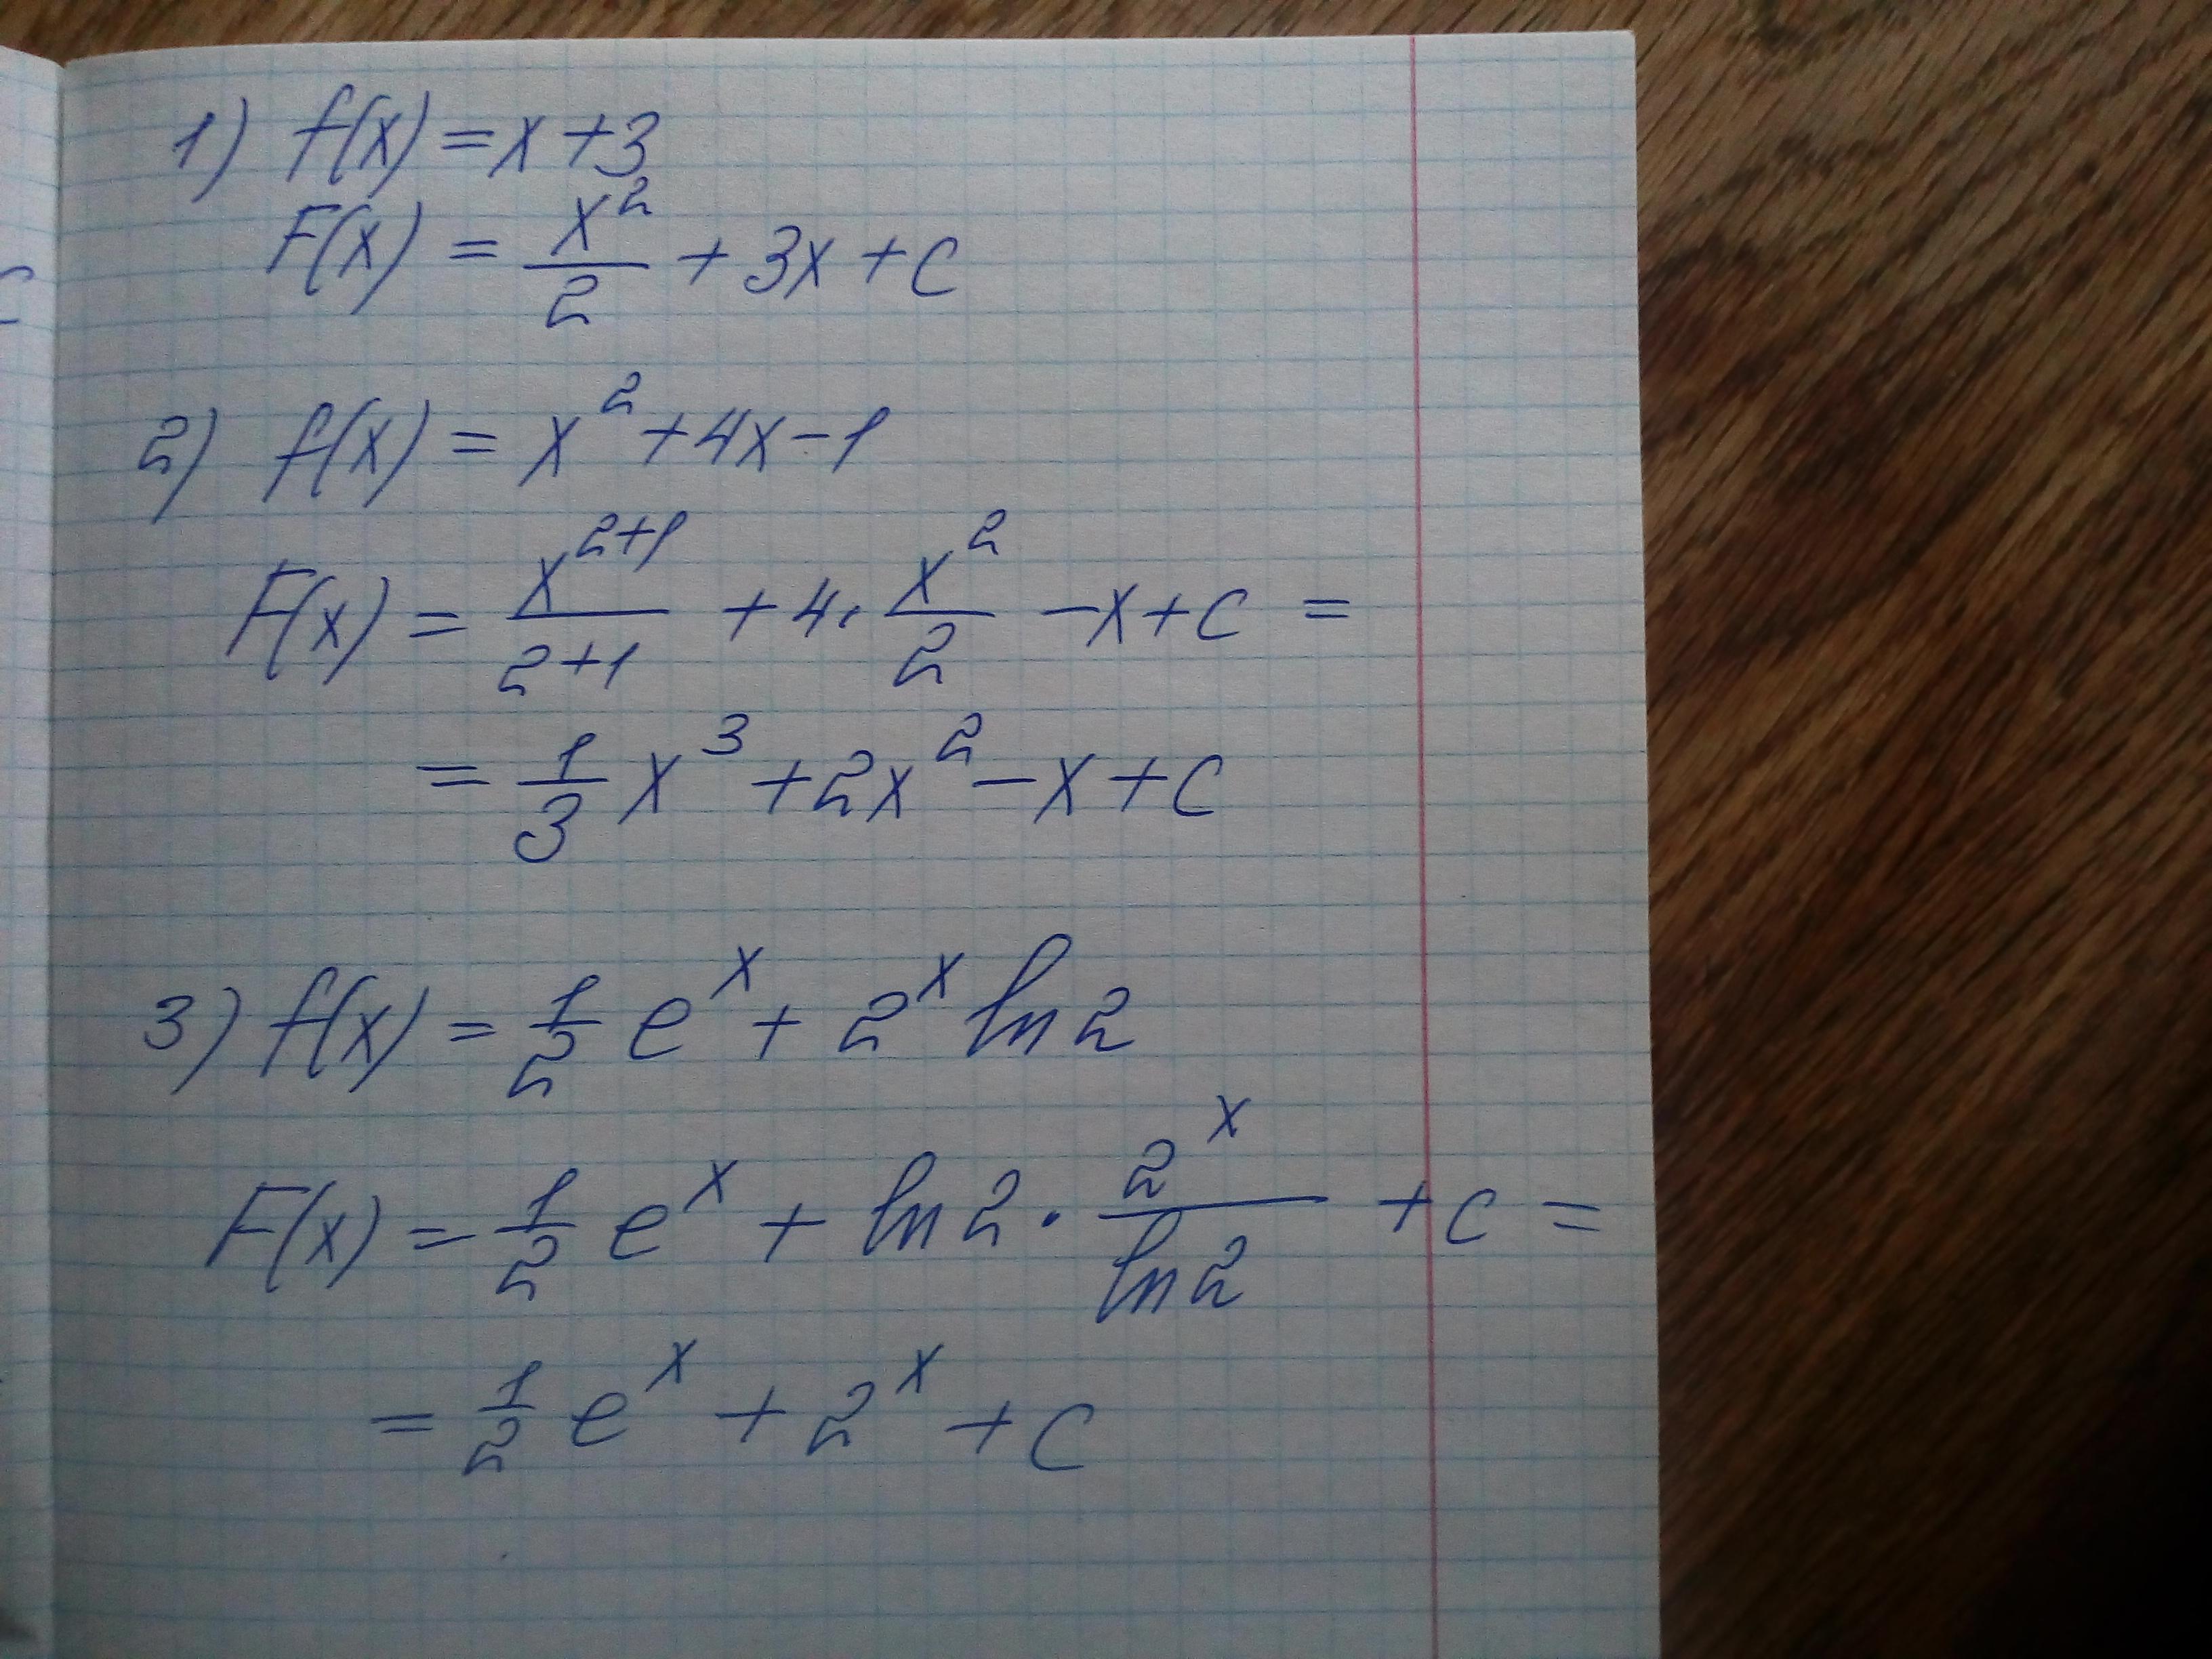 1) f(x) = x + 3
F(x) = x²/2 + 3x + c
2) f(x) = x² + 4x - 1
F(x) = x²⁺¹/(2+1) + 4 · x²/2 - x + c =
= 1/3 x³ + 2x² - x + c
3) f(x) = 1/2 eˣ + 2ˣ ln 2
F(x) = 1/2 eˣ + ln 2 · 2ˣ/ln 2 + c =
= 1/2 eˣ + 2ˣ + c